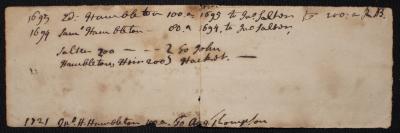 1693 Ed: Hambleton 100. a 1693 to Jno Salter to 200: a
1694 Saml Hambleton 60. a 1694, to Jno Salter,
Salter 200 — — 2 To John
Hambletons Heir 200 } Hacket. —
1721 Jno. H. Hambleton 100 a. To Aug Thompson